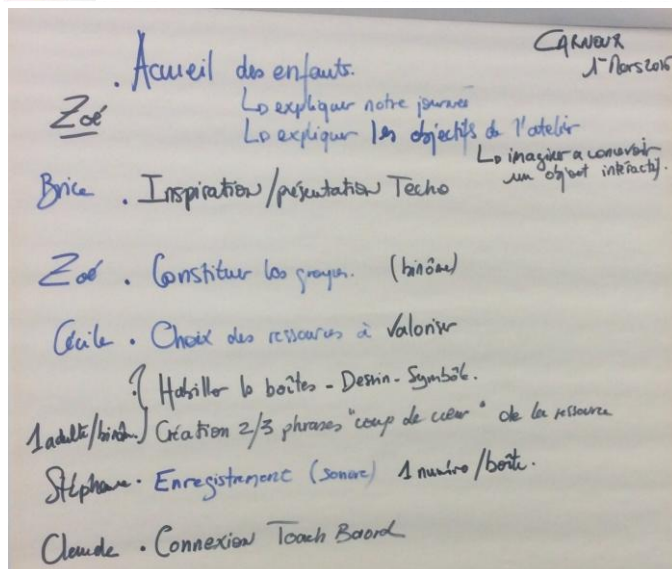 CARNOUX
1er Mars 2016
. Accueil des enfants.
Zoé
↳ expliquer notre journée
↳ expliquer les objectifs de l'atelier
↳ imaginer a concevoir
un objet intéractif.
Brice . Inspiration/présentation Techo
Zoé . Constituer les groupes. (binôme)
Cécile . Choix des ressources à valoriser
Habiller la boîtes - Dessin - Symbôle.
1 adulte/binôm. Création 2/3 phrases "coup de cœur" de la ressource
Stéphane . Enregistrement (sonore) 1 numéro/boîte.
Claude . Connexion Toach Baord